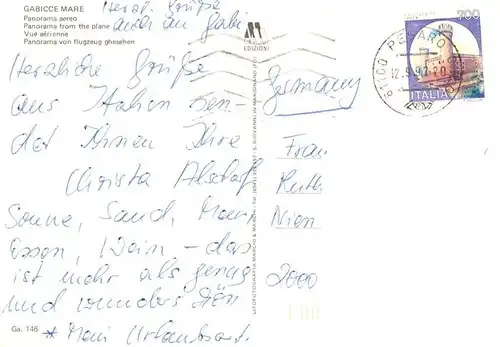 GABICCE MARE
Panorama aereo
Panorama from the plane
Vue aérienne
Panorama von flugzeug ghesehen
Herzl. Grüße
auch an Gabi
Herzliche Grüße
aus Italien sen-
det Ihnen Ihre
Christa
Sonne, Sand, Meer
Essen, Wein – das
ist mehr als genug
und wunderschön
* Mein Urlaubsort.
Ga. 146
EDIZIONI
LITOFOTOGRAFIA MARCHI & MARCHI
S. GIOVANNI IN MARIGNANO (FO)
700
ITALIA
61100 PESARO
12.9.92
Germany
Frau
Ruth
2000